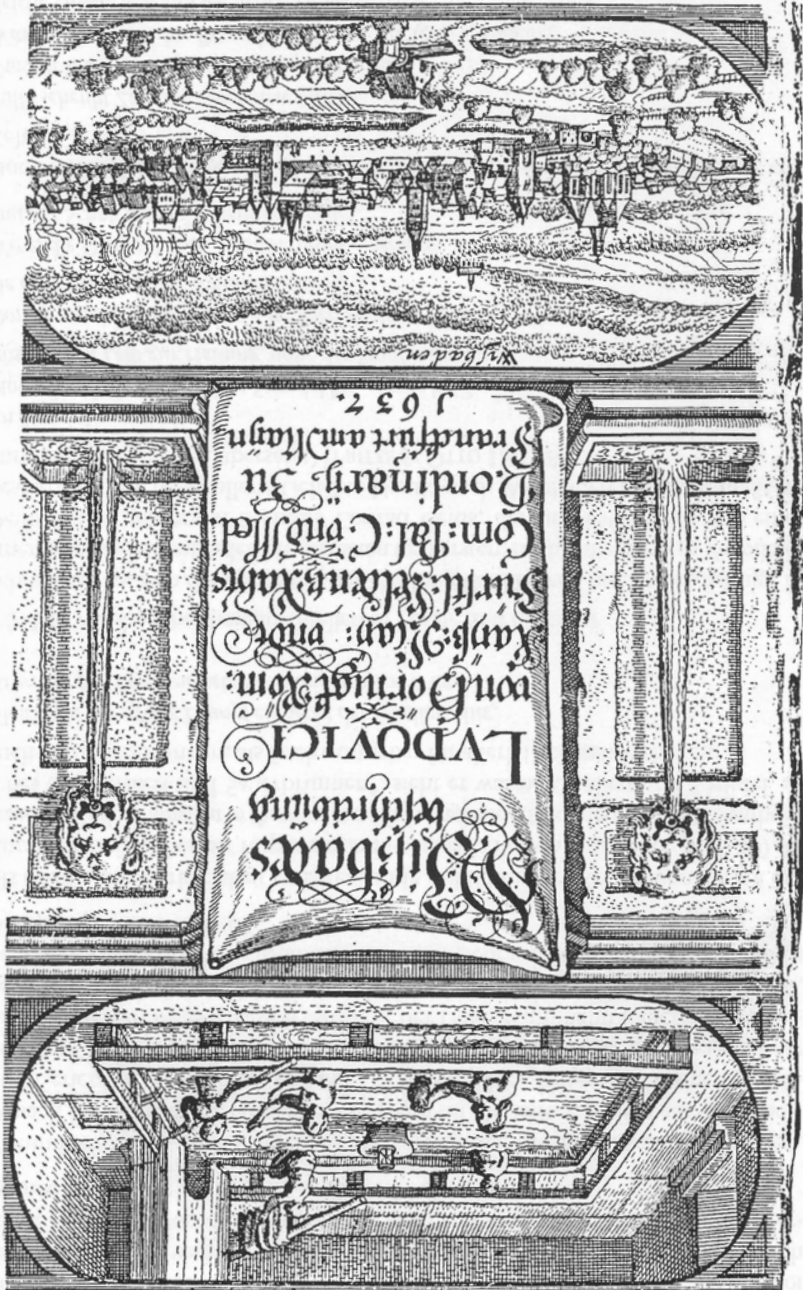 Wißbads
beschreibüng
LVDOVICI
von Hörnigk Röm:
Kayß: May: vndt
Fürstl: Rahts
Com: Pal: C: vnd Med.
Ordinarij Zü
Franckfurt am Mayn.
1637.
Wisbaden